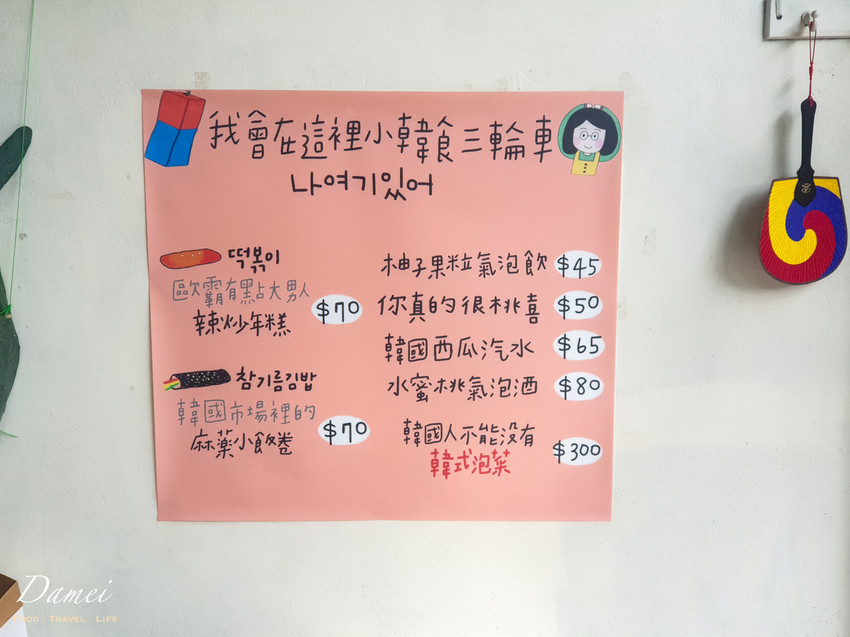 我會在這裡小韓食三輪車
나여기있어
떡볶이
歐霸有點大男人
辣炒年糕 $70
참기름김밥
韓國市場裡的
麻藥小飯卷 $70
柚子果粒氣泡飲 $45
你真的很桃喜 $50
韓國西瓜汽水 $65
水蜜桃氣泡酒 $80
韓國人不能沒有
韓式泡菜 $300
Damei
FOOD . TRAVEL . LIFE